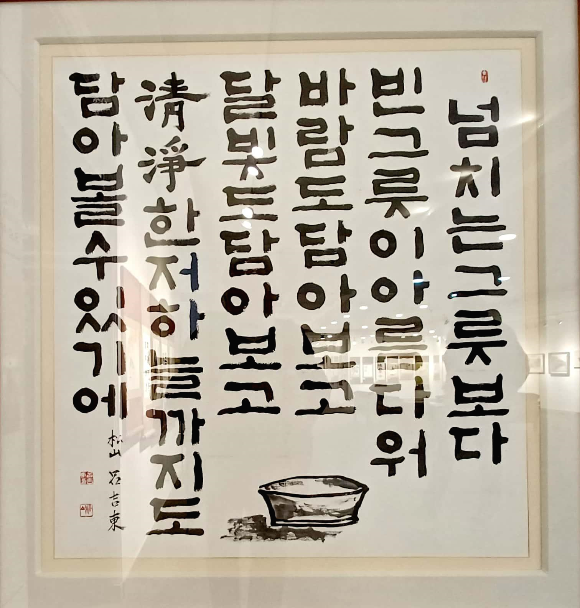 넘치는그릇보다
빈그릇이아름다워
바람도담아보고
달빛도담아보고
清淨한저하늘까지도
담아볼수있기에
松山 呂吉東